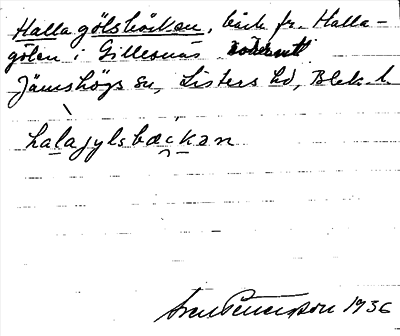 Hallagölsbäcken, bäck fr. Halla-
gölen i Gillesnäs
Jämshögs sn, Listers hd, Blek. l.
halajylsbæckan
Sven Petersson 1936